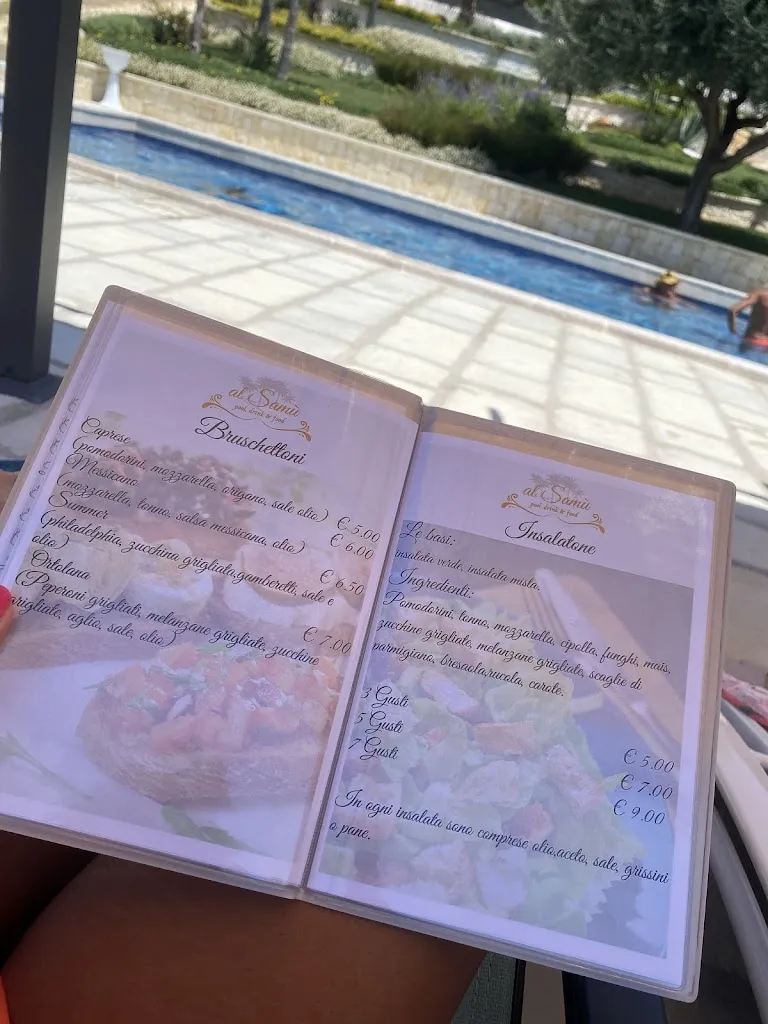 al Samù
pool, drink & food
Bruschettoni
Caprese
(pomodorini, mozzarella, origano, sale olio) € 5.00
Messicano
(mozzarella, tonno, salsa messicana, olio) € 6.00
Summer
(philadelphia, zucchina grigliata,gamberetti, sale e
olio) € 6.50
Ortolana
(Peperoni grigliati, melanzane grigliate, zucchine
grigliate, aglio, sale, olio) € 7.00
al Samù
pool, drink & food
Insalatone
Le basi:
insalata verde, insalata mista.
Ingredienti:
Pomodorini, tonno, mozzarella, cipolla, funghi, mais,
zucchine grigliate, melanzane grigliate, scaglie di
parmigiano, bresaola,rucola, carote.
3 Gusti € 5.00
5 Gusti € 7.00
7 Gusti € 9.00
In ogni insalata sono comprese olio,aceto, sale, grissini
o pane.